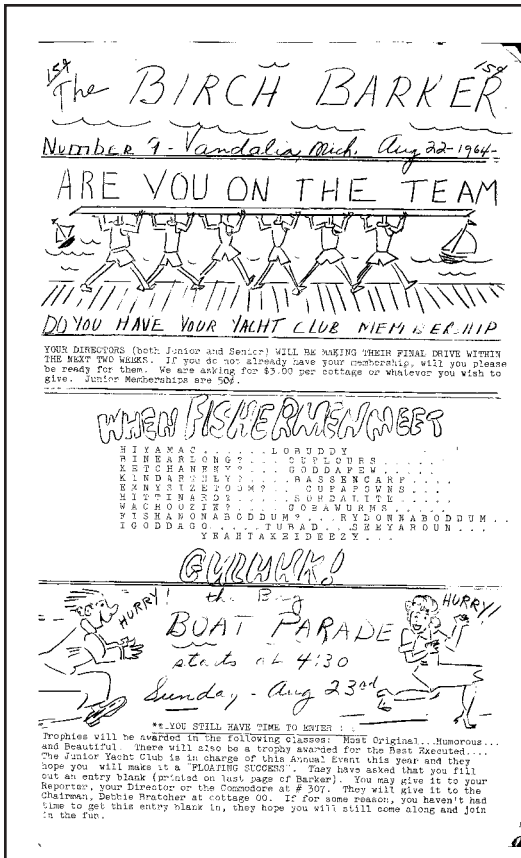 15¢ 15¢
The BIRCH BARKER
Number 9 - Vandalia, Mich. Aug 22-1964-
ARE YOU ON THE TEAM
DO YOU HAVE YOUR YACHT CLUB MEMBERSHIP
YOUR DIRECTORS (both Junior and Senior) WILL BE MAKING THEIR FINAL DRIVE WITHIN
THE NEXT TWO WEEKS. If you do not already have your membership, will you please
be ready for them. We are asking for $3.00 per cottage or whatever you wish to
give. Junior Memberships are 50¢.
WHEN FISHERMEN MEET
HIYAMAC.......LOBUDDY
BINEARLONG?....CUPLOURS.....
KETCHANENY?....GODDAFEW.....
KINDARTHEY?....BASSENCARP....
ENNYSIZETOOM?..CUPAPOWNS....
HITTINARD?.....SORDALITE....
WACHOOZIE?....GOBAWURMS....
FISHANONABODDUM?...RYDONNABODDUM...
IGODDAGO....TUBAD...SEEYAROUN...
YEAHTAKEIDEEZY...
HURRY! HURRY!
the Big
BOAT PARADE
starts at 4:30
Sunday - Aug 23rd
**.YOU STILL HAVE TIME TO ENTER
Trophies will be awarded in the following classes: Most Original...Humorous...
and Beautiful. There will also be a trophy awarded for the Best Executed....
The Junior Yacht Club is in charge of this Annual Event this year and they
hope you will make it a "FLOATING SUCCESS". They have asked that you fill
out an entry blank (printed on last page of Barker). You may give it to your
Reporter, your Director or the Commodore at # 307. They will give it to the
Chairman, Debbie Bratcher at cottage 00. If for some reason, you haven't had
time to get this entry blank in, they hope you will still come along and join
in the fun.